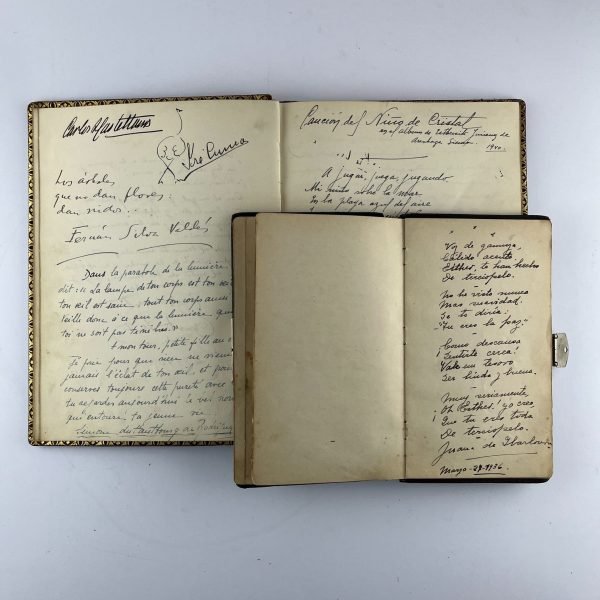 Carlos A Castellanos
Los árboles
que no dan flores:
dan nidos..
Fernán Silva Valdés
Dans la parabole de la lumière
dit: "La lampe du corps est ton œil
ton œil est sain, tout ton corps aura
donc à ce que la lumière
toi ne soit pas ténèbres"
A mon tour, petite fille au
je prie pour que rien ne vienne
jamais l'éclat de ton œil, et pour
conserves toujours cette pureté avec
tu regardes aujourd'hui le vel
qui entoure ta jeune vie
Canción del Nino de Cristal
en el album de Esthercita Gimenez de
Arechaga
1940.
A jugar, juega, jugando
Mi niño sobre la mar
En la playa azul del aire
Voz de gamuza,
Cálido acento
Esther, te han hecho
De terciopelo.
No he visto nunca
Mas suavidad.
Se te diria:
"Tu eres la paz"
Como descansa
Sentirte cerca!
Vale un tesoro
Ser linda y buena.
Muy seriamente,
Oh Esther, yo creo
Que tu eres toda
De terciopelo.
Juana de Ibarbourou
Marzo - 29-1936